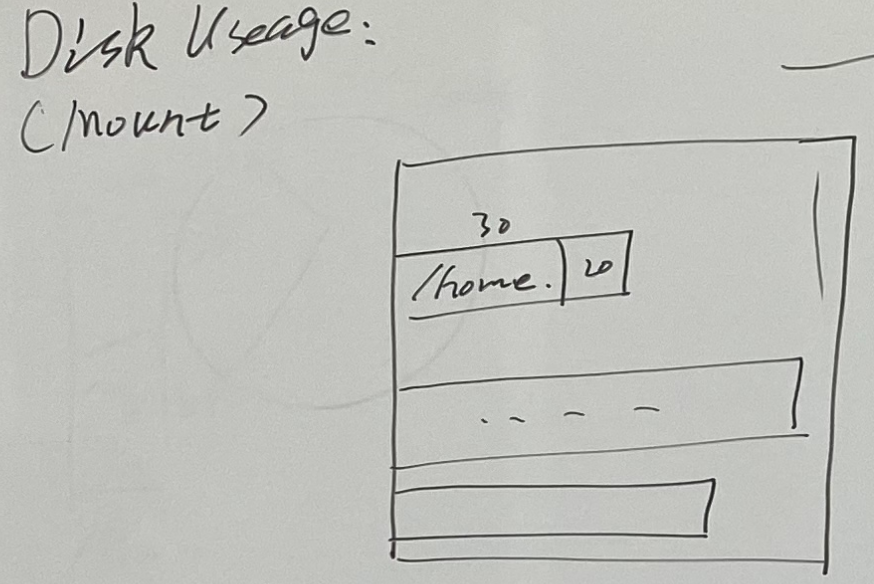 Disk Useage:
(/mount)
30
/home.
20